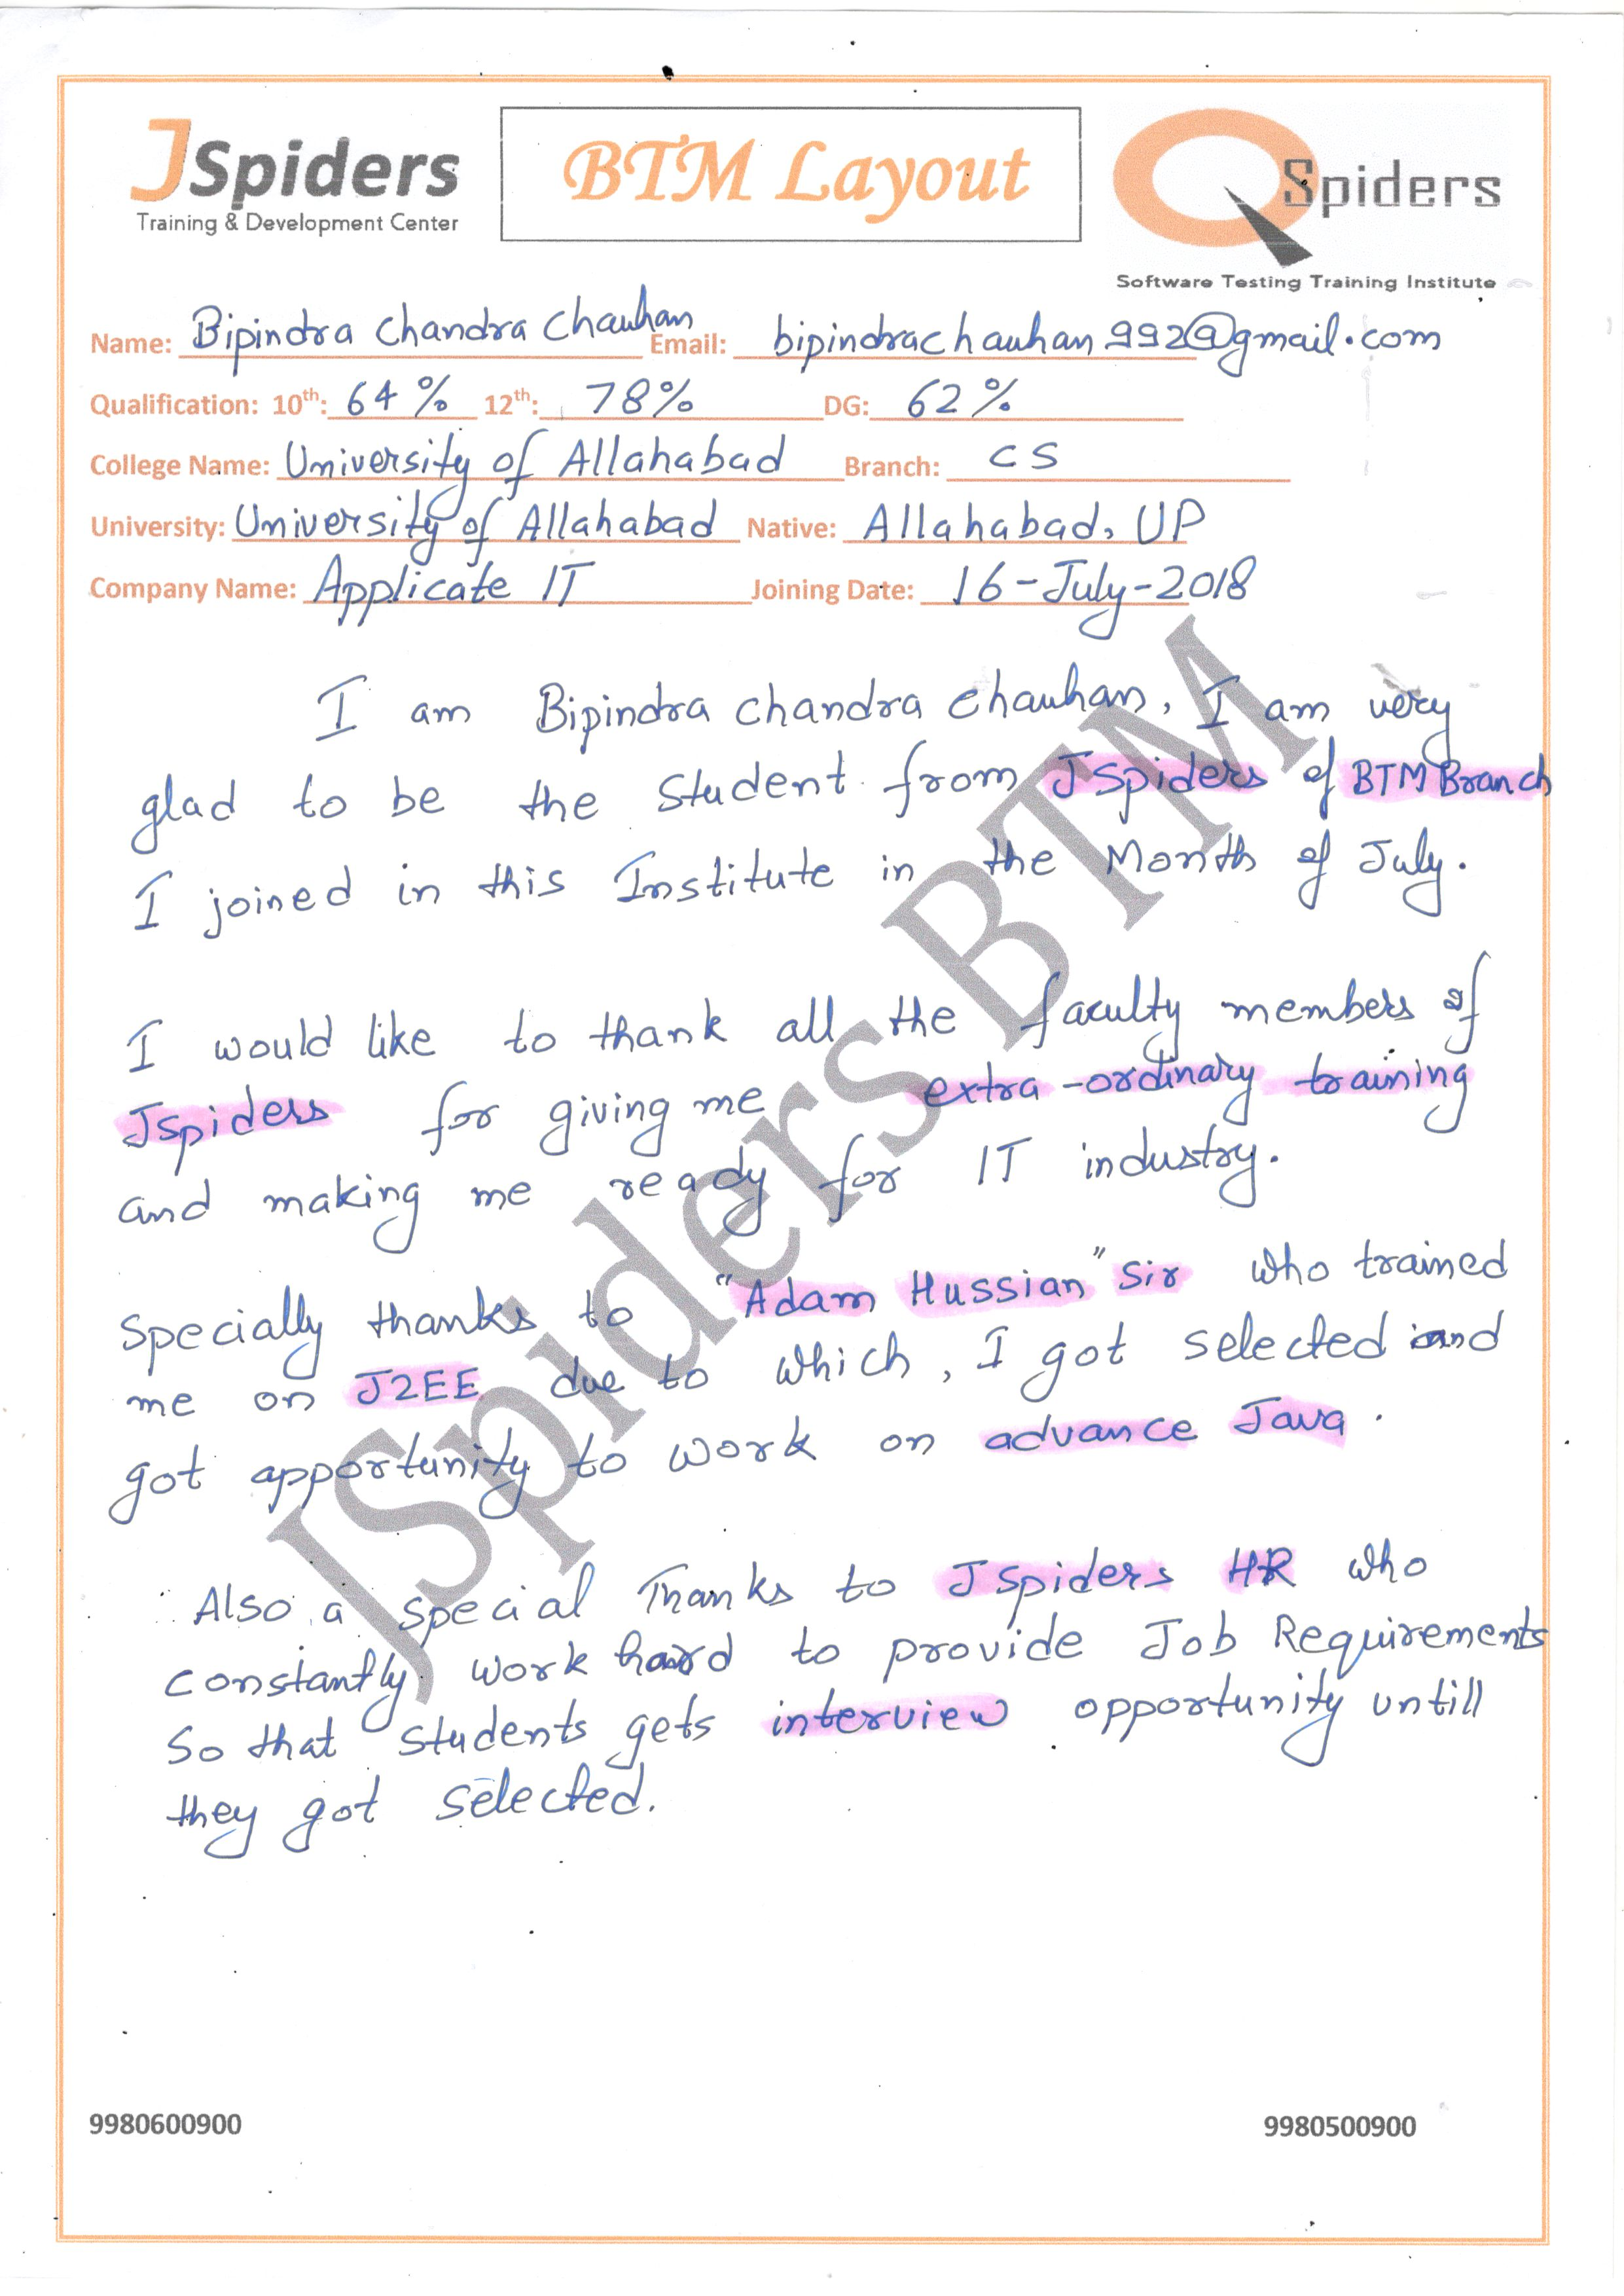 JSpiders
Training & Development Center
BTM Layout
QSpiders
Software Testing Training Institute
Name: Bipindra Chandra Chauhan Email: bipindrachauhan992@gmail.com
Qualification: 10th: 64% 12th: 78% DG: 62%
College Name: University of Allahabad Branch: CS
University: University of Allahabad Native: Allahabad, UP
Company Name: Applicate IT Joining Date: 16-July-2018
I am Bipindra Chandra Chauhan, I am very
glad to be the student from JSpiders of BTM Branch
I joined in this Institute in the Month of July.
I would like to thank all the faculty members of
Jspiders for giving me extra-ordinary training
and making me ready for IT industry.
Specially thanks to "Adam Hussian" Sir who trained
me on J2EE due to which, I got selected and
got apportunity to work on advance Java.
Also a special Thanks to JSpiders HR who
constantly work hard to provide Job Requirements
So that students gets interview opportunity untill
they got selected.
JSpiders BTM
9980600900 9980500900